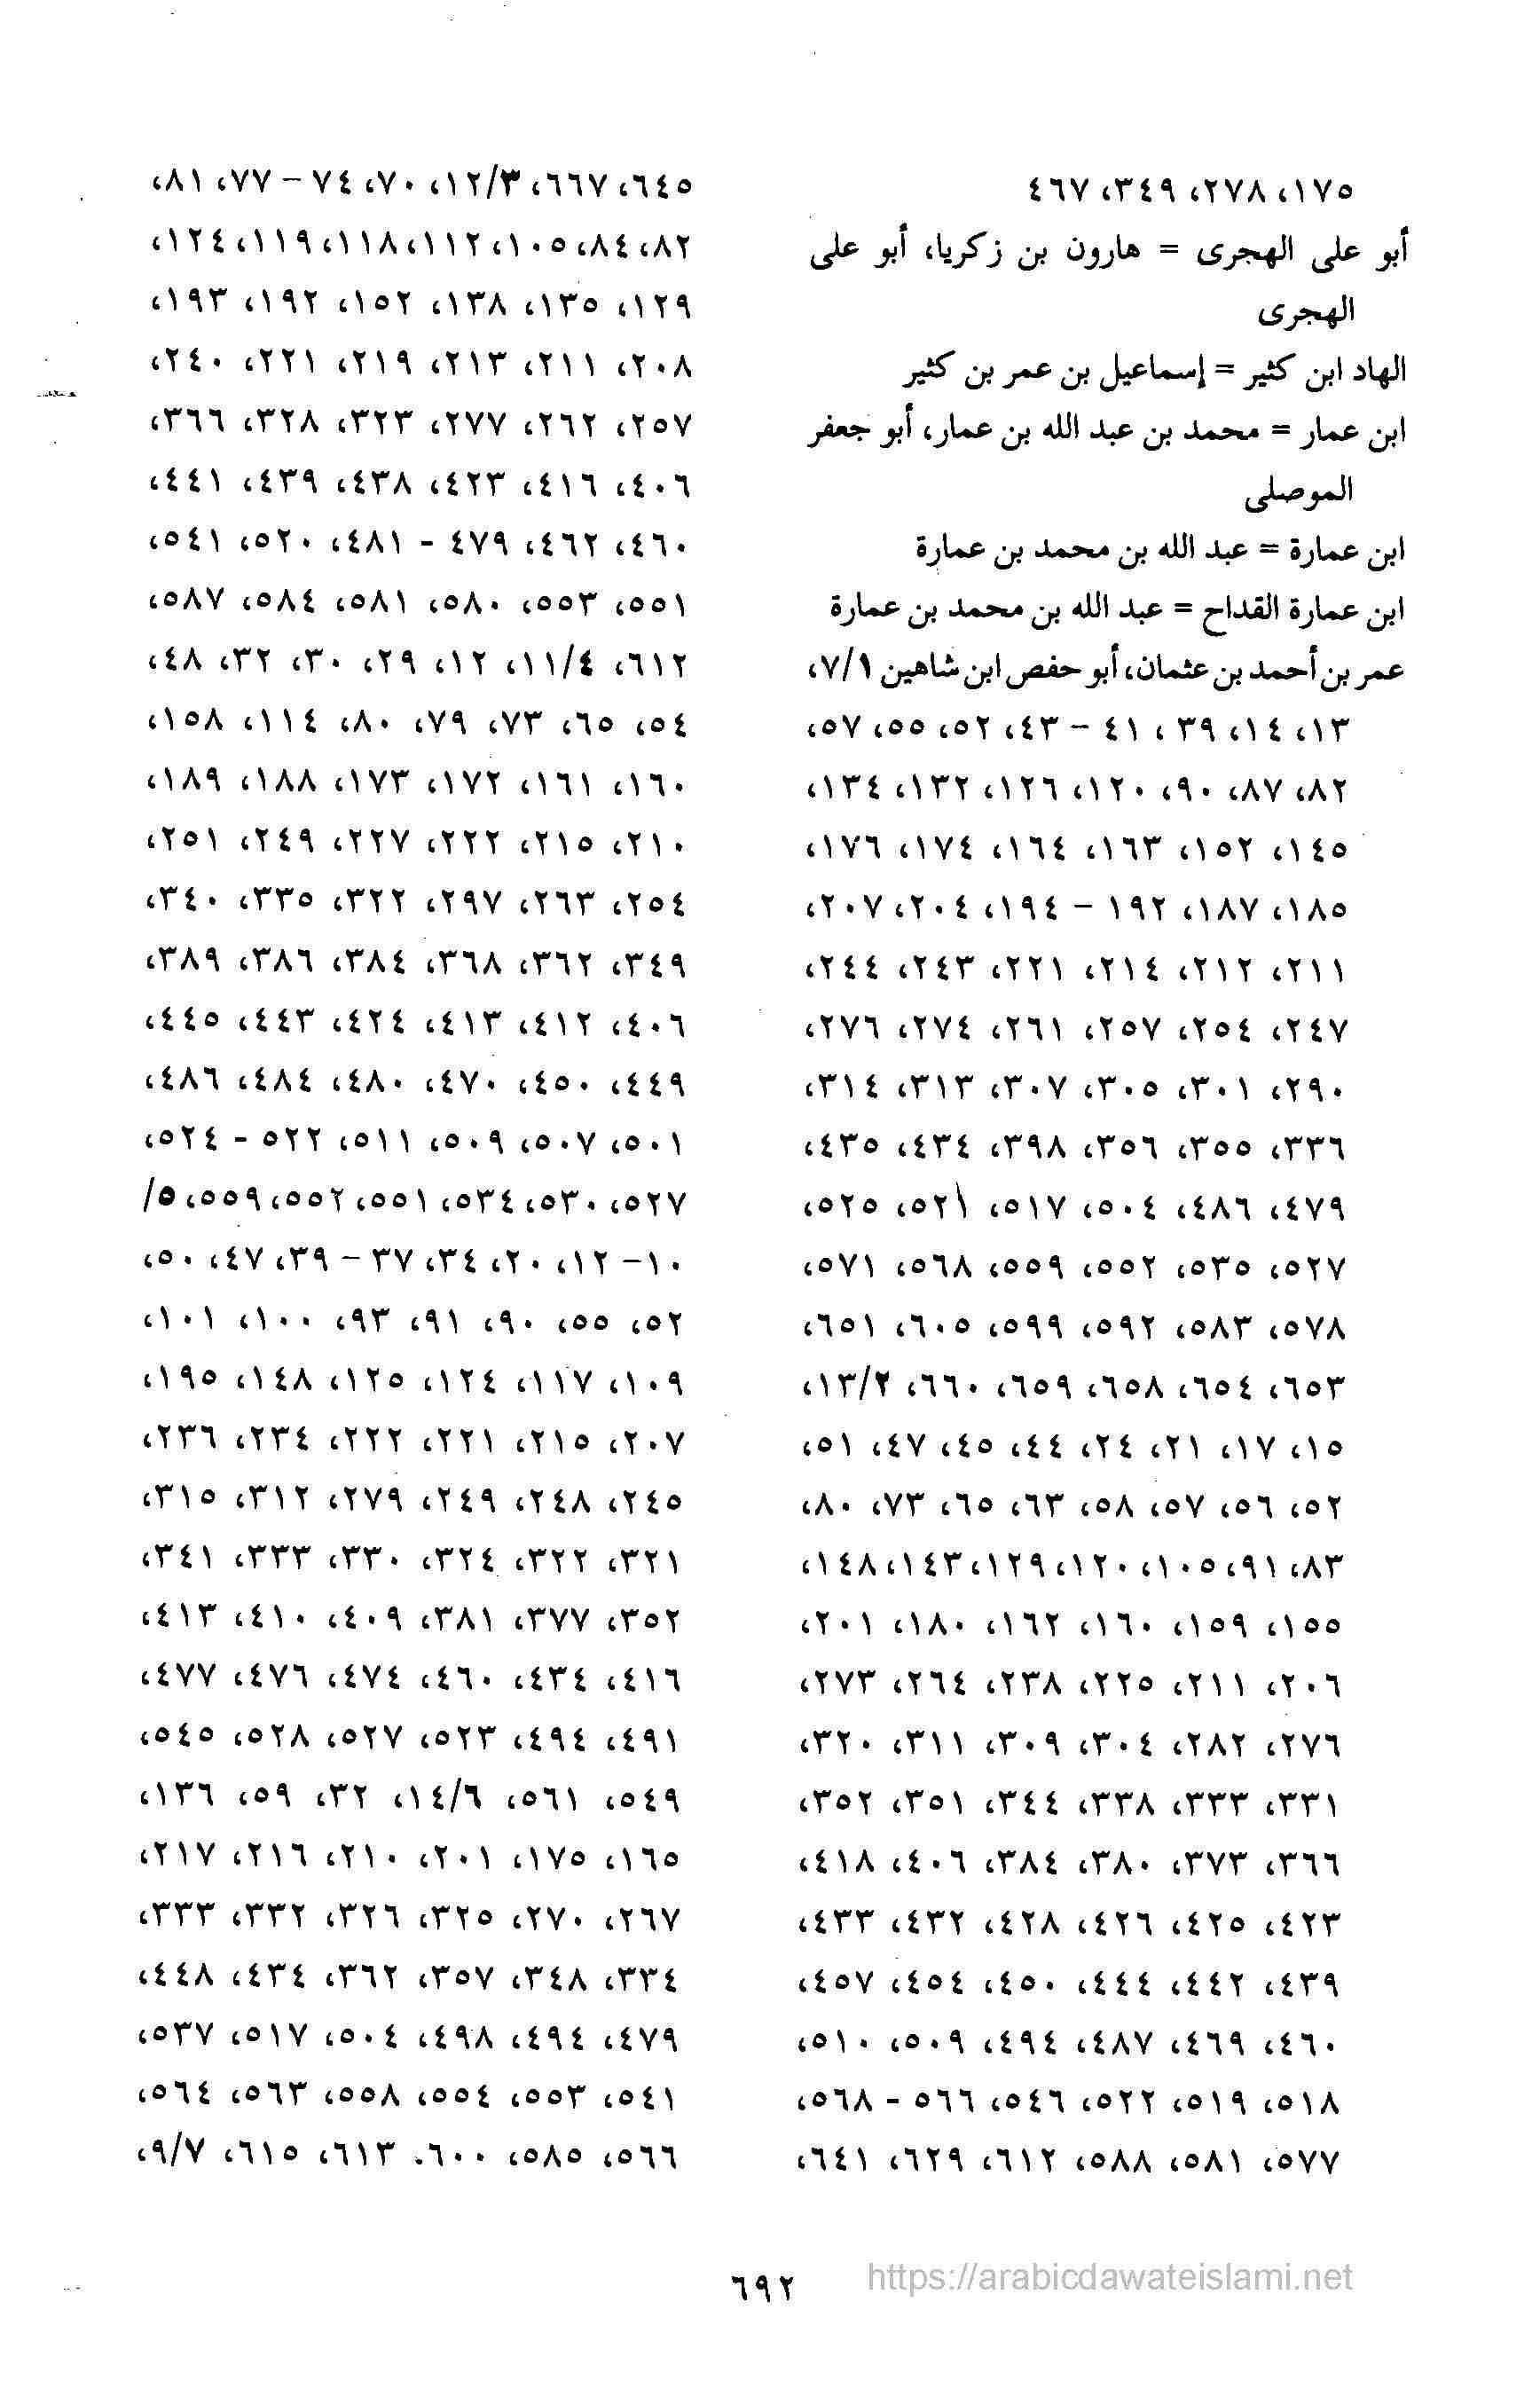 ١٧٥، ٢٧٨، ٣٤٩، ٤٦٧
أبو على الهجرى = هارون بن زكريا، أبو على
الهجرى
الهاد ابن كثير = إسماعيل بن عمر بن كثير
ابن عمار = محمد بن عبد الله بن عمار، أبو جعفر
الموصلى
ابن عمارة = عبد الله بن محمد بن عمارة
ابن عمارة القداح = عبد الله بن محمد بن عمارة
عمر بن أحمد بن عثمان، أبو حفص ابن شاهين ٧/١،
١٣، ١٤، ٣٩، ٤١ - ٤٣، ٥٢، ٥٥، ٥٧،
٨٢، ٨٧، ٩٠، ١٢٠، ١٢٦، ١٣٢، ١٣٤،
١٤٥، ١٥٢، ١٦٣، ١٦٤، ١٧٤، ١٧٦،
١٨٥، ١٨٧، ١٩٢ - ١٩٤، ٢٠٤، ٢٠٧،
٢١١، ٢١٢، ٢١٤، ٢٢١، ٢٤٣، ٢٤٤،
٢٤٧، ٢٥٤، ٢٥٧، ٢٦١، ٢٧٤، ٢٧٦،
٢٩٠، ٣٠١، ٣٠٥، ٣٠٧، ٣١٣، ٣١٤،
٣٣٦، ٣٥٥، ٣٥٦، ٣٩٨، ٤٣٤، ٤٣٥،
٤٧٩، ٤٨٦، ٥٠٤، ٥١٧، ٥٢١، ٥٢٥،
٥٢٧، ٥٣٥، ٥٥٢، ٥٥٩، ٥٦٨، ٥٧١،
٥٧٨، ٥٨٣، ٥٩٢، ٥٩٩، ٦٠٥، ٦٥١،
٦٥٣، ٦٥٤، ٦٥٨، ٦٥٩، ٦٦٠، ١٣/٢،
١٥، ١٧، ٢١، ٢٤، ٤٤، ٤٥، ٤٧، ٥١،
٥٢، ٥٦، ٥٧، ٥٨، ٦٣، ٦٥، ٧٣، ٨٠،
٨٣، ٩١، ١٠٥، ١٢٠، ١٢٩، ١٤٣، ١٤٨،
١٥٥، ١٥٩، ١٦٠، ١٦٢، ١٨٠، ٢٠١،
٢٠٦، ٢١١، ٢٢٥، ٢٣٨، ٢٦٤، ٢٧٣،
٢٧٦، ٢٨٢، ٣٠٤، ٣٠٩، ٣١١، ٣٢٠،
٣٣١، ٣٣٣، ٣٣٨، ٣٤٤، ٣٥١، ٣٥٢،
٣٦٦، ٣٧٣، ٣٨٠، ٣٨٤، ٤٠٦، ٤١٨،
٤٢٣، ٤٢٥، ٤٢٦، ٤٢٨، ٤٣٢، ٤٣٣،
٤٣٩، ٤٤٢، ٤٤٤، ٤٥٠، ٤٥٤، ٤٥٧،
٤٦٠، ٤٦٩، ٤٨٧، ٤٩٤، ٥٠٩، ٥١٠،
٥١٨، ٥١٩، ٥٢٢، ٥٤٦، ٥٦٦ - ٥٦٨،
٥٧٧، ٥٨١، ٥٨٨، ٦١٢، ٦٢٩، ٦٤١،
٦٤٥، ٦٦٧، ١٢/٣، ٧٠، ٧٤ - ٧٧، ٨١،
٨٢، ٨٤، ١٠٥، ١١٢، ١١٨، ١١٩، ١٢٤،
١٢٩، ١٣٥، ١٣٨، ١٥٢، ١٩٢، ١٩٣،
٢٠٨، ٢١١، ٢١٣، ٢١٩، ٢٢١، ٢٤٠،
٢٥٧، ٢٦٢، ٢٧٧، ٣٢٣، ٣٢٨، ٣٦٦،
٤٠٦، ٤١٦، ٤٢٣، ٤٣٨، ٤٣٩، ٤٤١،
٤٦٠، ٤٦٢، ٤٧٩ - ٤٨١، ٥٢٠، ٥٤١،
٥٥١، ٥٥٣، ٥٨٠، ٥٨١، ٥٨٤، ٥٨٧،
٦١٢، ١١/٤، ١٢، ٢٩، ٣٠، ٣٢، ٤٨،
٥٤، ٦٥، ٧٣، ٧٩، ٨٠، ١١٤، ١٥٨،
١٦٠، ١٦١، ١٧٢، ١٧٣، ١٨٨، ١٨٩،
٢١٠، ٢١٥، ٢٢٢، ٢٢٧، ٢٤٩، ٢٥١،
٢٥٤، ٢٦٣، ٢٩٧، ٣٢٢، ٣٣٥، ٣٤٠،
٣٤٩، ٣٦٢، ٣٦٨، ٣٨٤، ٣٨٦، ٣٨٩،
٤٠٦، ٤١٢، ٤١٣، ٤٢٤، ٤٤٣، ٤٤٥،
٤٤٩، ٤٥٠، ٤٧٠، ٤٨٠، ٤٨٤، ٤٨٦،
٥٠١، ٥٠٧، ٥٠٩، ٥١١، ٥٢٢ - ٥٢٤،
٥٢٧، ٥٣٠، ٥٣٤، ٥٥١، ٥٥٢، ٥٥٩، ٥/
١٠- ١٢، ٢٠، ٣٤، ٣٧ - ٣٩، ٤٧، ٥٠،
٥٢، ٥٥، ٩٠، ٩١، ٩٣، ١٠٠، ١٠١،
١٠٩، ١١٧، ١٢٤، ١٢٥، ١٤٨، ١٩٥،
٢٠٧، ٢١٥، ٢٢١، ٢٢٢، ٢٣٤، ٢٣٦،
٢٤٥، ٢٤٨، ٢٤٩، ٢٧٩، ٣١٢، ٣١٥،
٣٢١، ٣٢٢، ٣٢٤، ٣٣٠، ٣٣٣، ٣٤١،
٣٥٢، ٣٧٧، ٣٨١، ٤٠٩، ٤١٠، ٤١٣،
٤١٦، ٤٣٤، ٤٦٠، ٤٧٤، ٤٧٦، ٤٧٧،
٤٩١، ٤٩٤، ٥٢٣، ٥٢٧، ٥٢٨، ٥٤٥،
٥٤٩، ٥٦١، ١٤/٦، ٣٢، ٥٩، ١٣٦،
١٦٥، ١٧٥، ٢٠١، ٢١٠، ٢١٦، ٢١٧،
٢٦٧، ٢٧٠، ٣٢٥، ٣٢٦، ٣٣٢، ٣٣٣،
٣٣٤، ٣٤٨، ٣٥٧، ٣٦٢، ٤٣٤، ٤٤٨،
٤٧٩، ٤٩٤، ٤٩٨، ٥٠٤، ٥١٧، ٥٣٧،
٥٤١، ٥٥٣، ٥٥٤، ٥٥٨، ٥٦٣، ٥٦٤،
٥٦٦، ٥٨٥، ٦٠٠. ٦١٣، ٦١٥، ٩/٧،
٦٩٢
https://arabicdawateislami.net